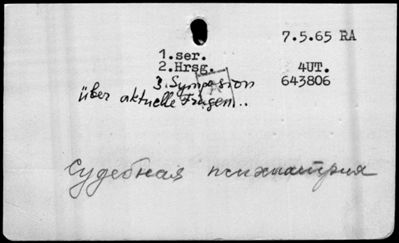 7.5.65 RA
1.ser.
2.Hrsg. 4UT.
3. Symposion 643806
über aktuelle Fragen..
Судебная психиатрия